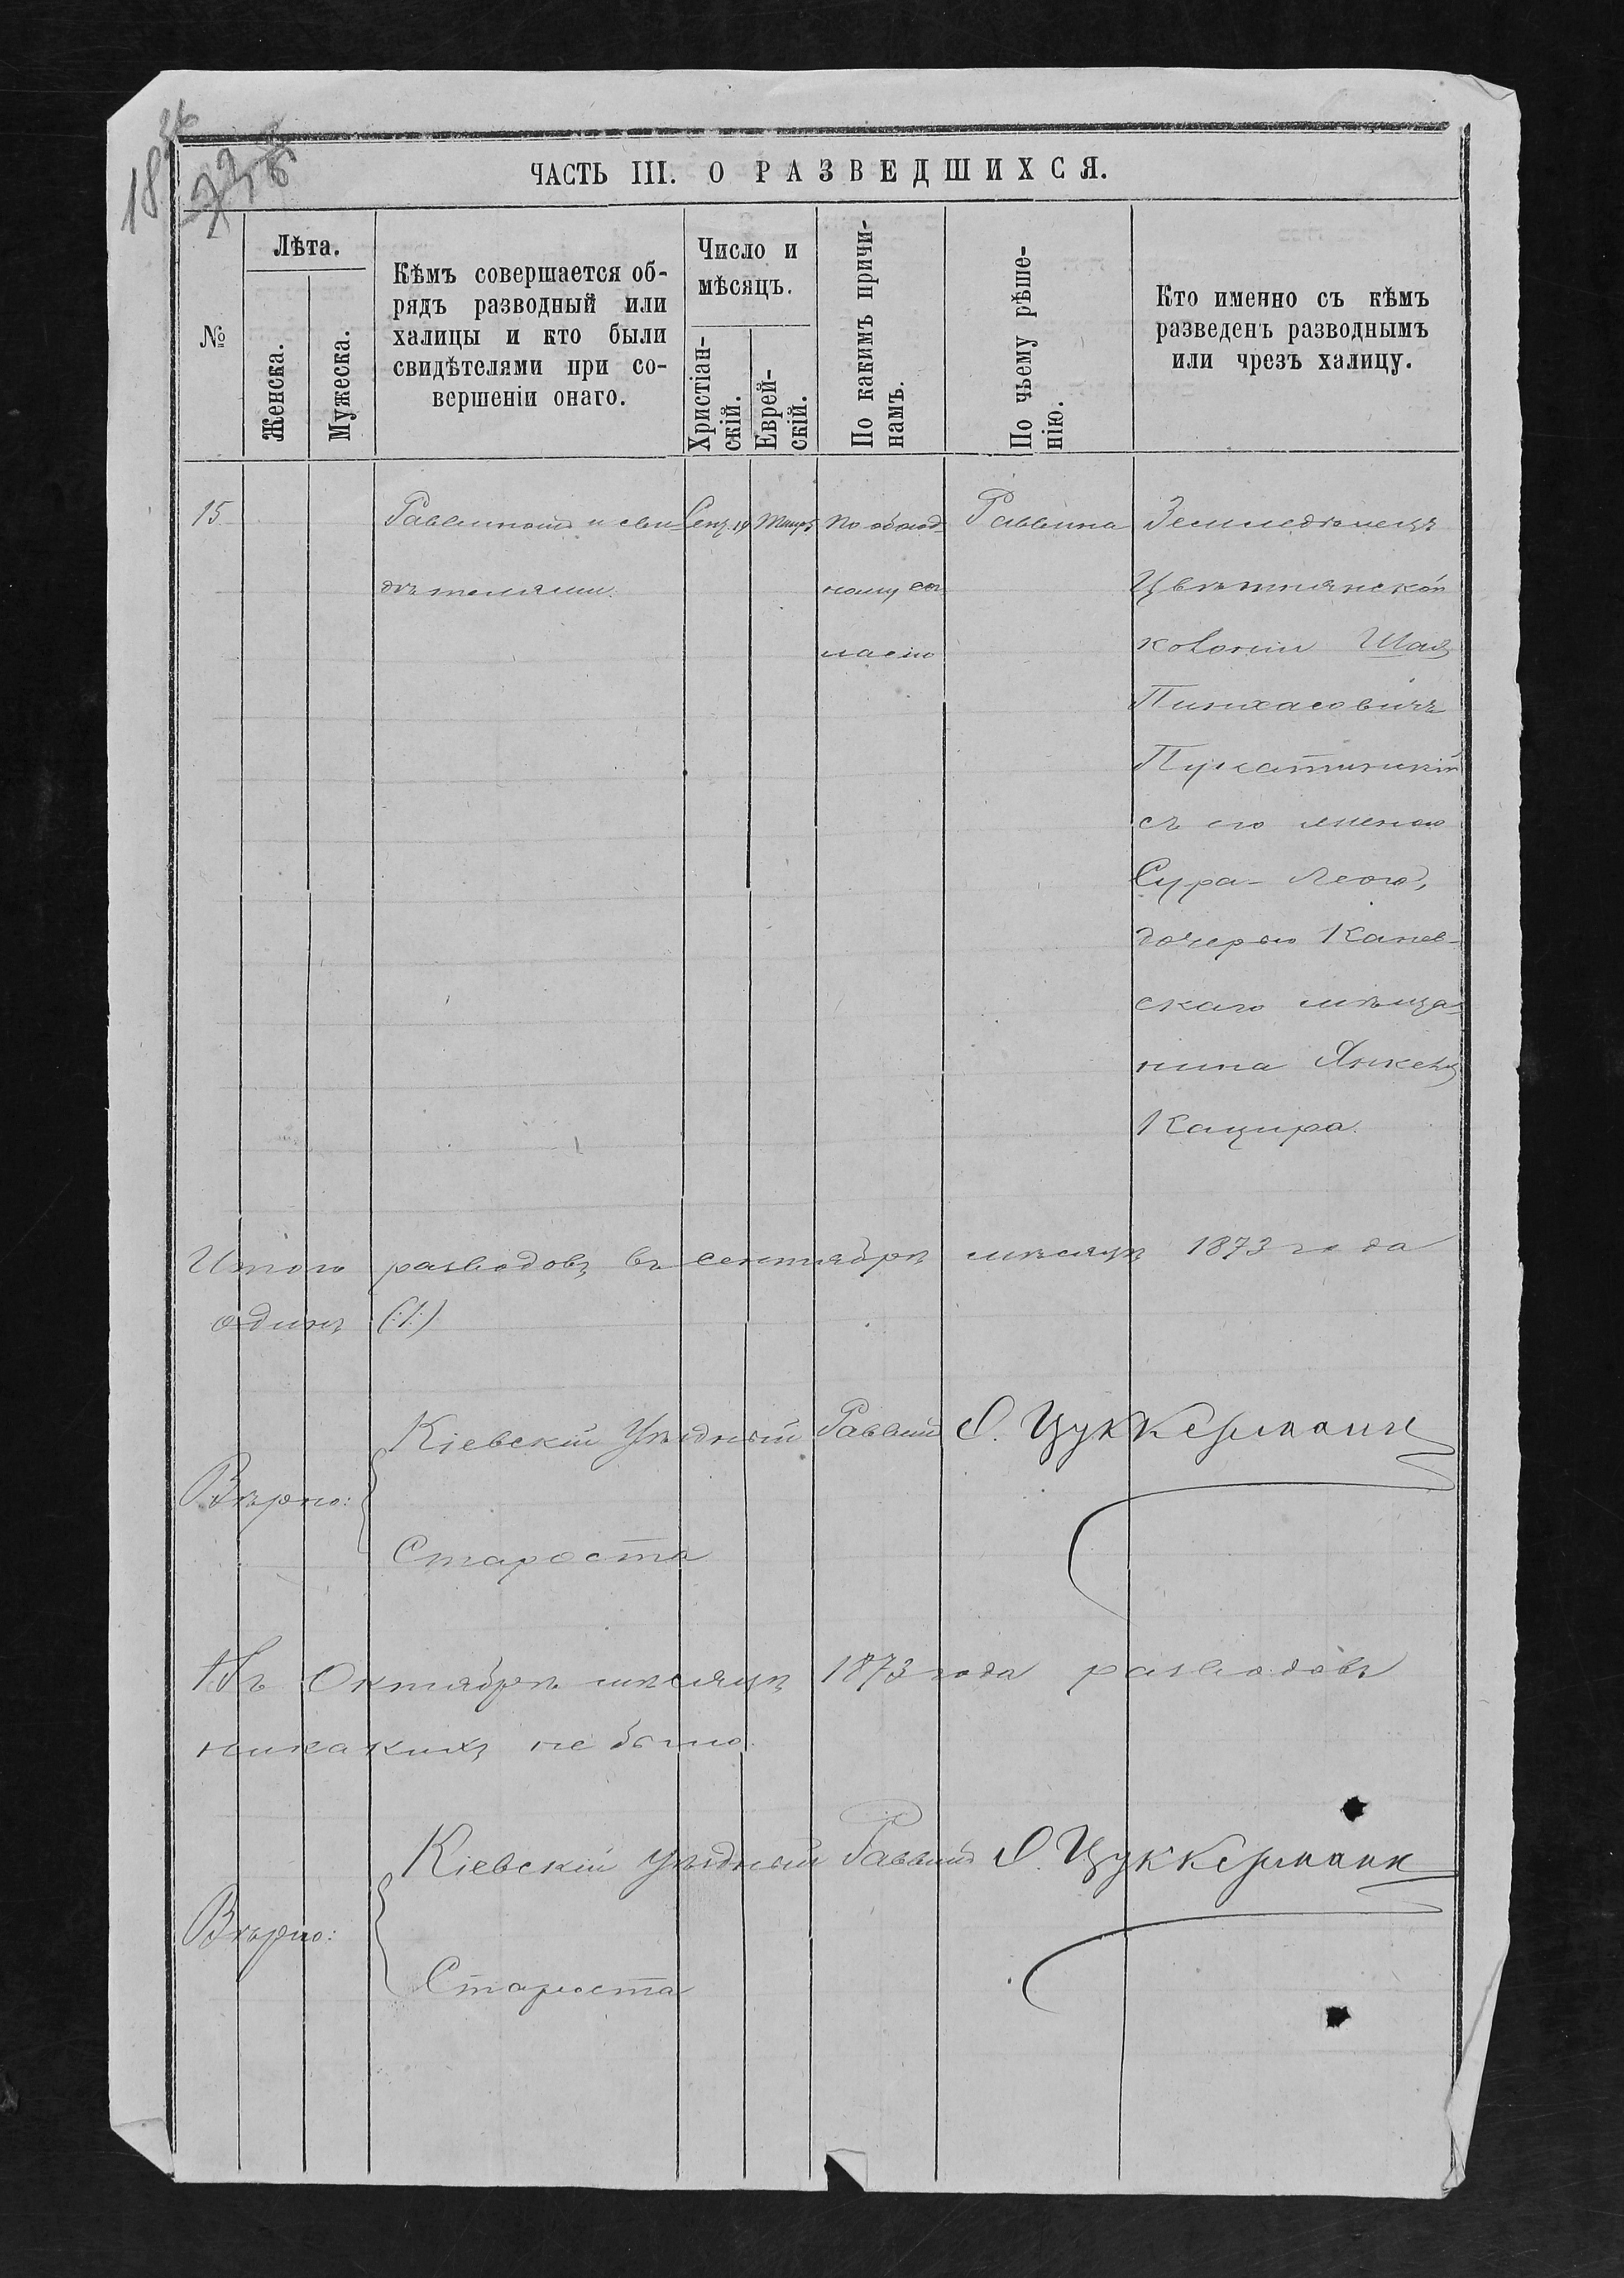 ЧАСТЬ III. О РАЗВЕДШИХСЯ.
№
Лѣта.
Женска.
Мужеска.
Кѣмъ совершается об-
рядъ разводный или
халицы и кто были
свидѣтелями при со-
вершеніи онаго.
Число и
мѣсяцъ.
Христіан-
скій.
Еврей-
скій.
По какимъ причи-
намъ.
По чьему рѣше-
нію.
Кто именно съ кѣмъ
разведенъ разводнымъ
или чрезъ халицу.
15 Раввиномъ и сви- Сен. По обоюд- Раввина Земледѣлецъ
дѣтелями. ному со Цвѣтнянской
гласію колоніи Шая
Пинхасовичъ
съ его женою
Сура-Леею,
дочерью Канев-
скаго мѣща-
нина Янкеля
Кацира.
Итого разводовъ въ сентябрѣ мѣсяцѣ 1873 года
одинъ (:1:)
Кіевскій Уѣздный Раввинъ С. Цуккерманъ
Вѣрно:
Староста
Въ Октябрѣ мѣсяцѣ 1873 года разводовъ
никакихъ не было.
Кіевскій уѣздный Раввинъ С. Цуккерманъ
Вѣрно:
Староста